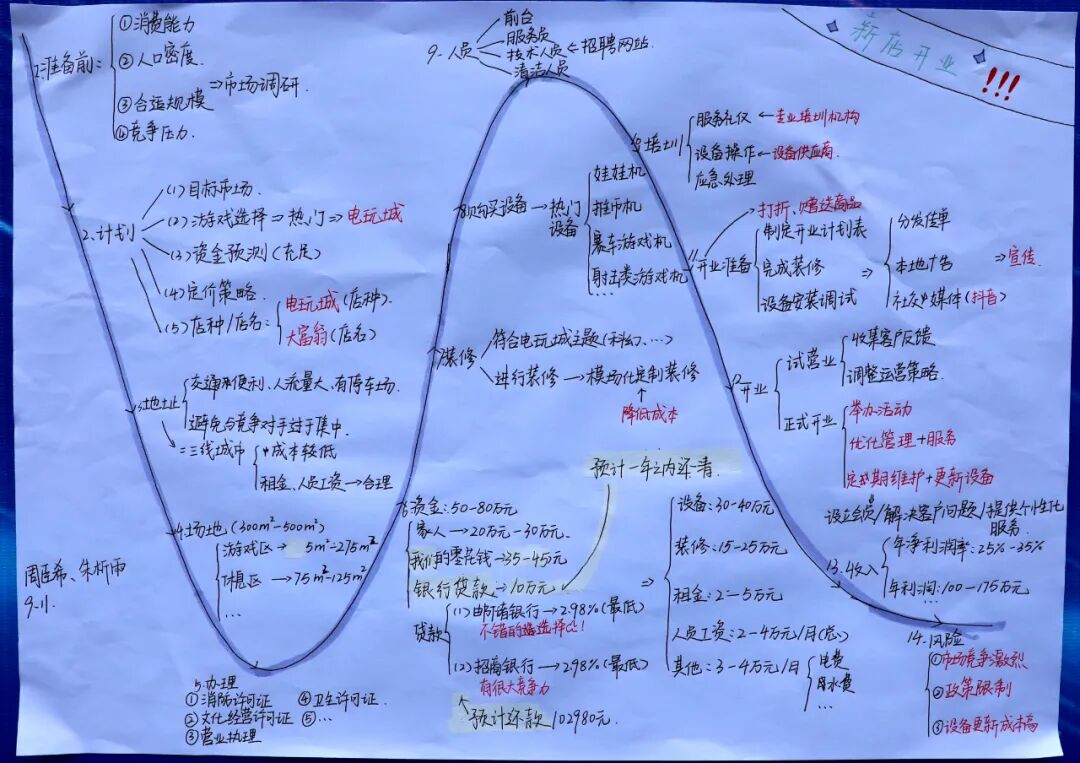 新店开业 !!!
1.准备前：
①消费能力
②人口密度
⇒市场调研.
③合适规模
④竞争压力.
2.计划
(1)目标市场.
(2)游戏选择⇒热门⇒电玩城
(3)资金预测(充足)
(4)定价策略.
(5)店种/店名：
电玩城(店种).
大富翁(店名)
3.地址
交通便利、人流量大、有停车场.
避免与竞争对手过于集中.
二三线城市
成本较低
租金、人员工资→合理
4.场地(300m²-500m²)
游戏区→ 5m²-275m²
休息区→75m²-125m²
...
周臣希、朱析雨
9.11.
5.办理
①消防许可证 ④卫生许可证.
②文化经营许可证 ⑤...
③营业执理
6资金:50-80万元
家人→20万元-30万元.
我们的零花钱→35-45元
银行贷款→10万元
预计一年之内还清.
贷款
(1)邮储银行→2.98%(最低)
不错的选择!
(2)招商银行→2.98%(最低)
有很大竞争力
预计还款102980元.
⇒
设备:30-40万元
装修:15-25万元
租金:2-5万元
人员工资:2-4万元/月
其他:3-4万元/月
电费
水费
...
7装修
符合电玩城主题(科幻、...)
进行装修→模块化定制装修
降低成本
8购买设备→热门设备
娃娃机
推币机
赛车游戏机
射击类游戏机
...
9.人员
前台
服务员
技术人员←招聘网站.
清洁人员
10培训
服务礼仪←专业培训机构
设备操作←设备供应商.
应急处理
11开业准备
打折、赠送商品
制定开业计划表
完成装修
设备安装调试
⇒
分发传单
本地广告
社交媒体(抖音)
⇒宣传.
12开业
试营业
收集客户反馈
调整运营策略.
正式开业
举办活动
优化管理+服务
定期维护+更新设备
设立会员/解决客户问题/提供个性化
服务.
13.收入
年净利润率:25%-35%
年利润:100-175万元
...
14.风险
①市场竞争激烈
②政策限制
③设备更新成本高